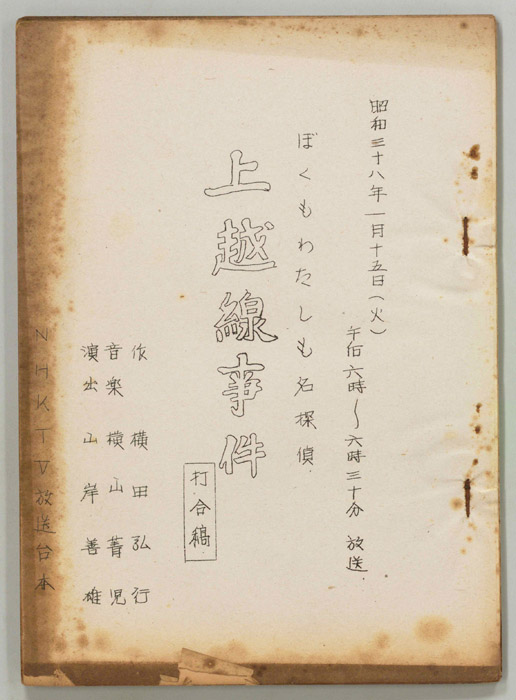 昭和三十八年一月十五日(火)
午后六時〜六時三十分 放送
ぼくもわたしも名探偵
上越線事件
打合稿
作 横田弘行
音楽 横山菁児
演出 山岸善雄
NHKTV放送台本